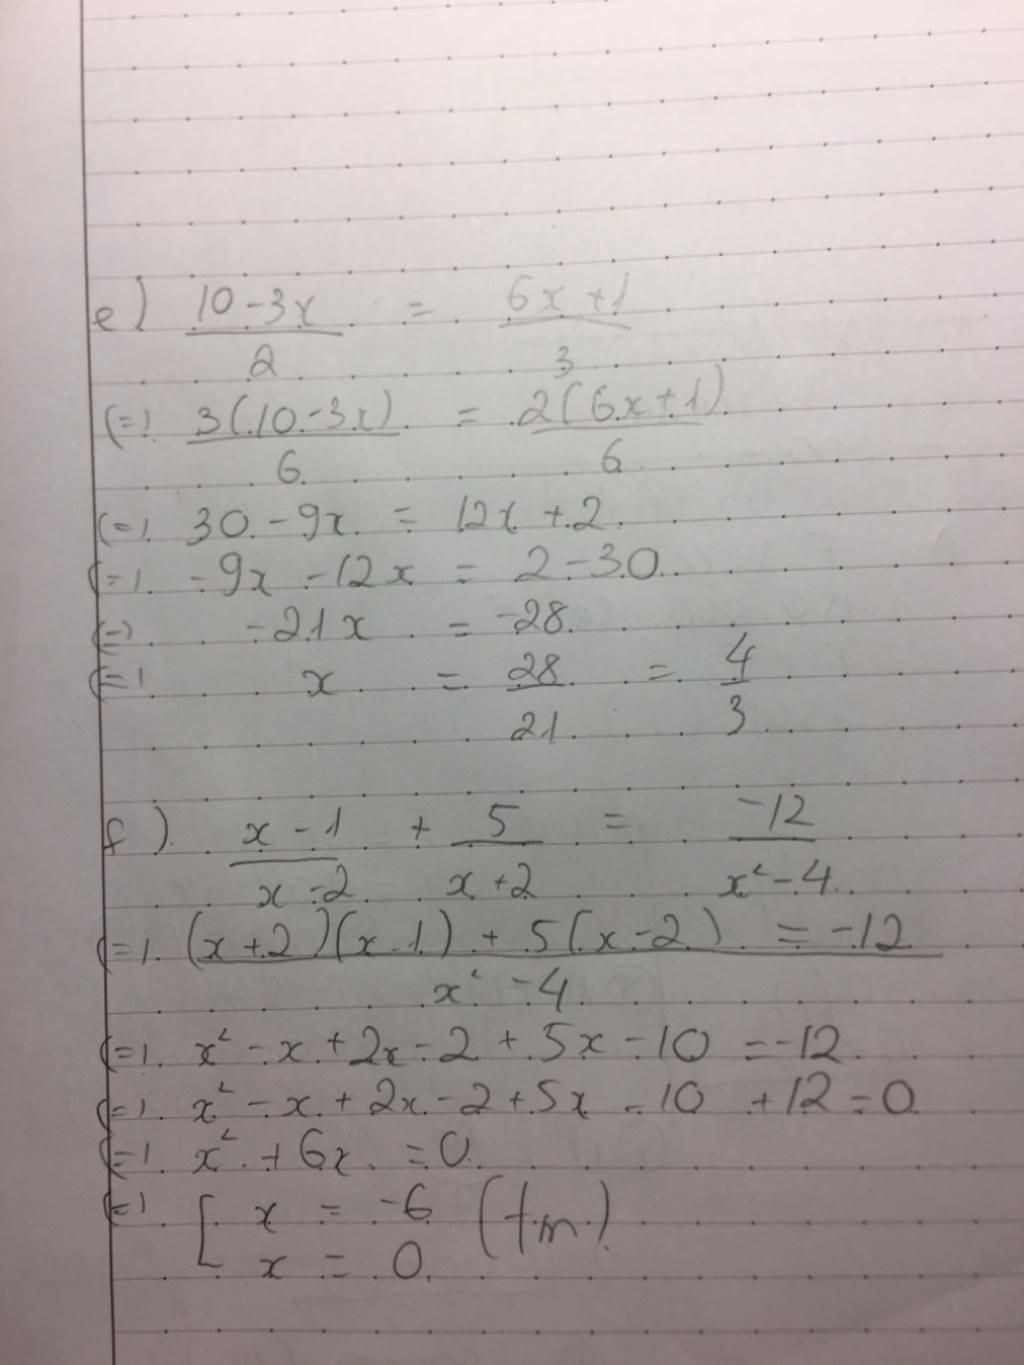 e) (10-3x)/2 = (6x+1)/3
(=) 3(10-3x)/6 = 2(6x+1)/6
(=) 30-9x = 12x+2
(=) -9x-12x = 2-30
(=) -21x = -28
(=) x = 28/21 = 4/3
f) (x-1)/(x-2) + 5/(x+2) = -12/(x²-4)
(=) (x+2)(x-1)+5(x-2) = -12 / x²-4
(=) x²-x+2x-2+5x-10 = -12
(=) x²-x+2x-2+5x-10+12=0
(=) x²+6x=0
(=) [ x = -6 (tm)
x = 0